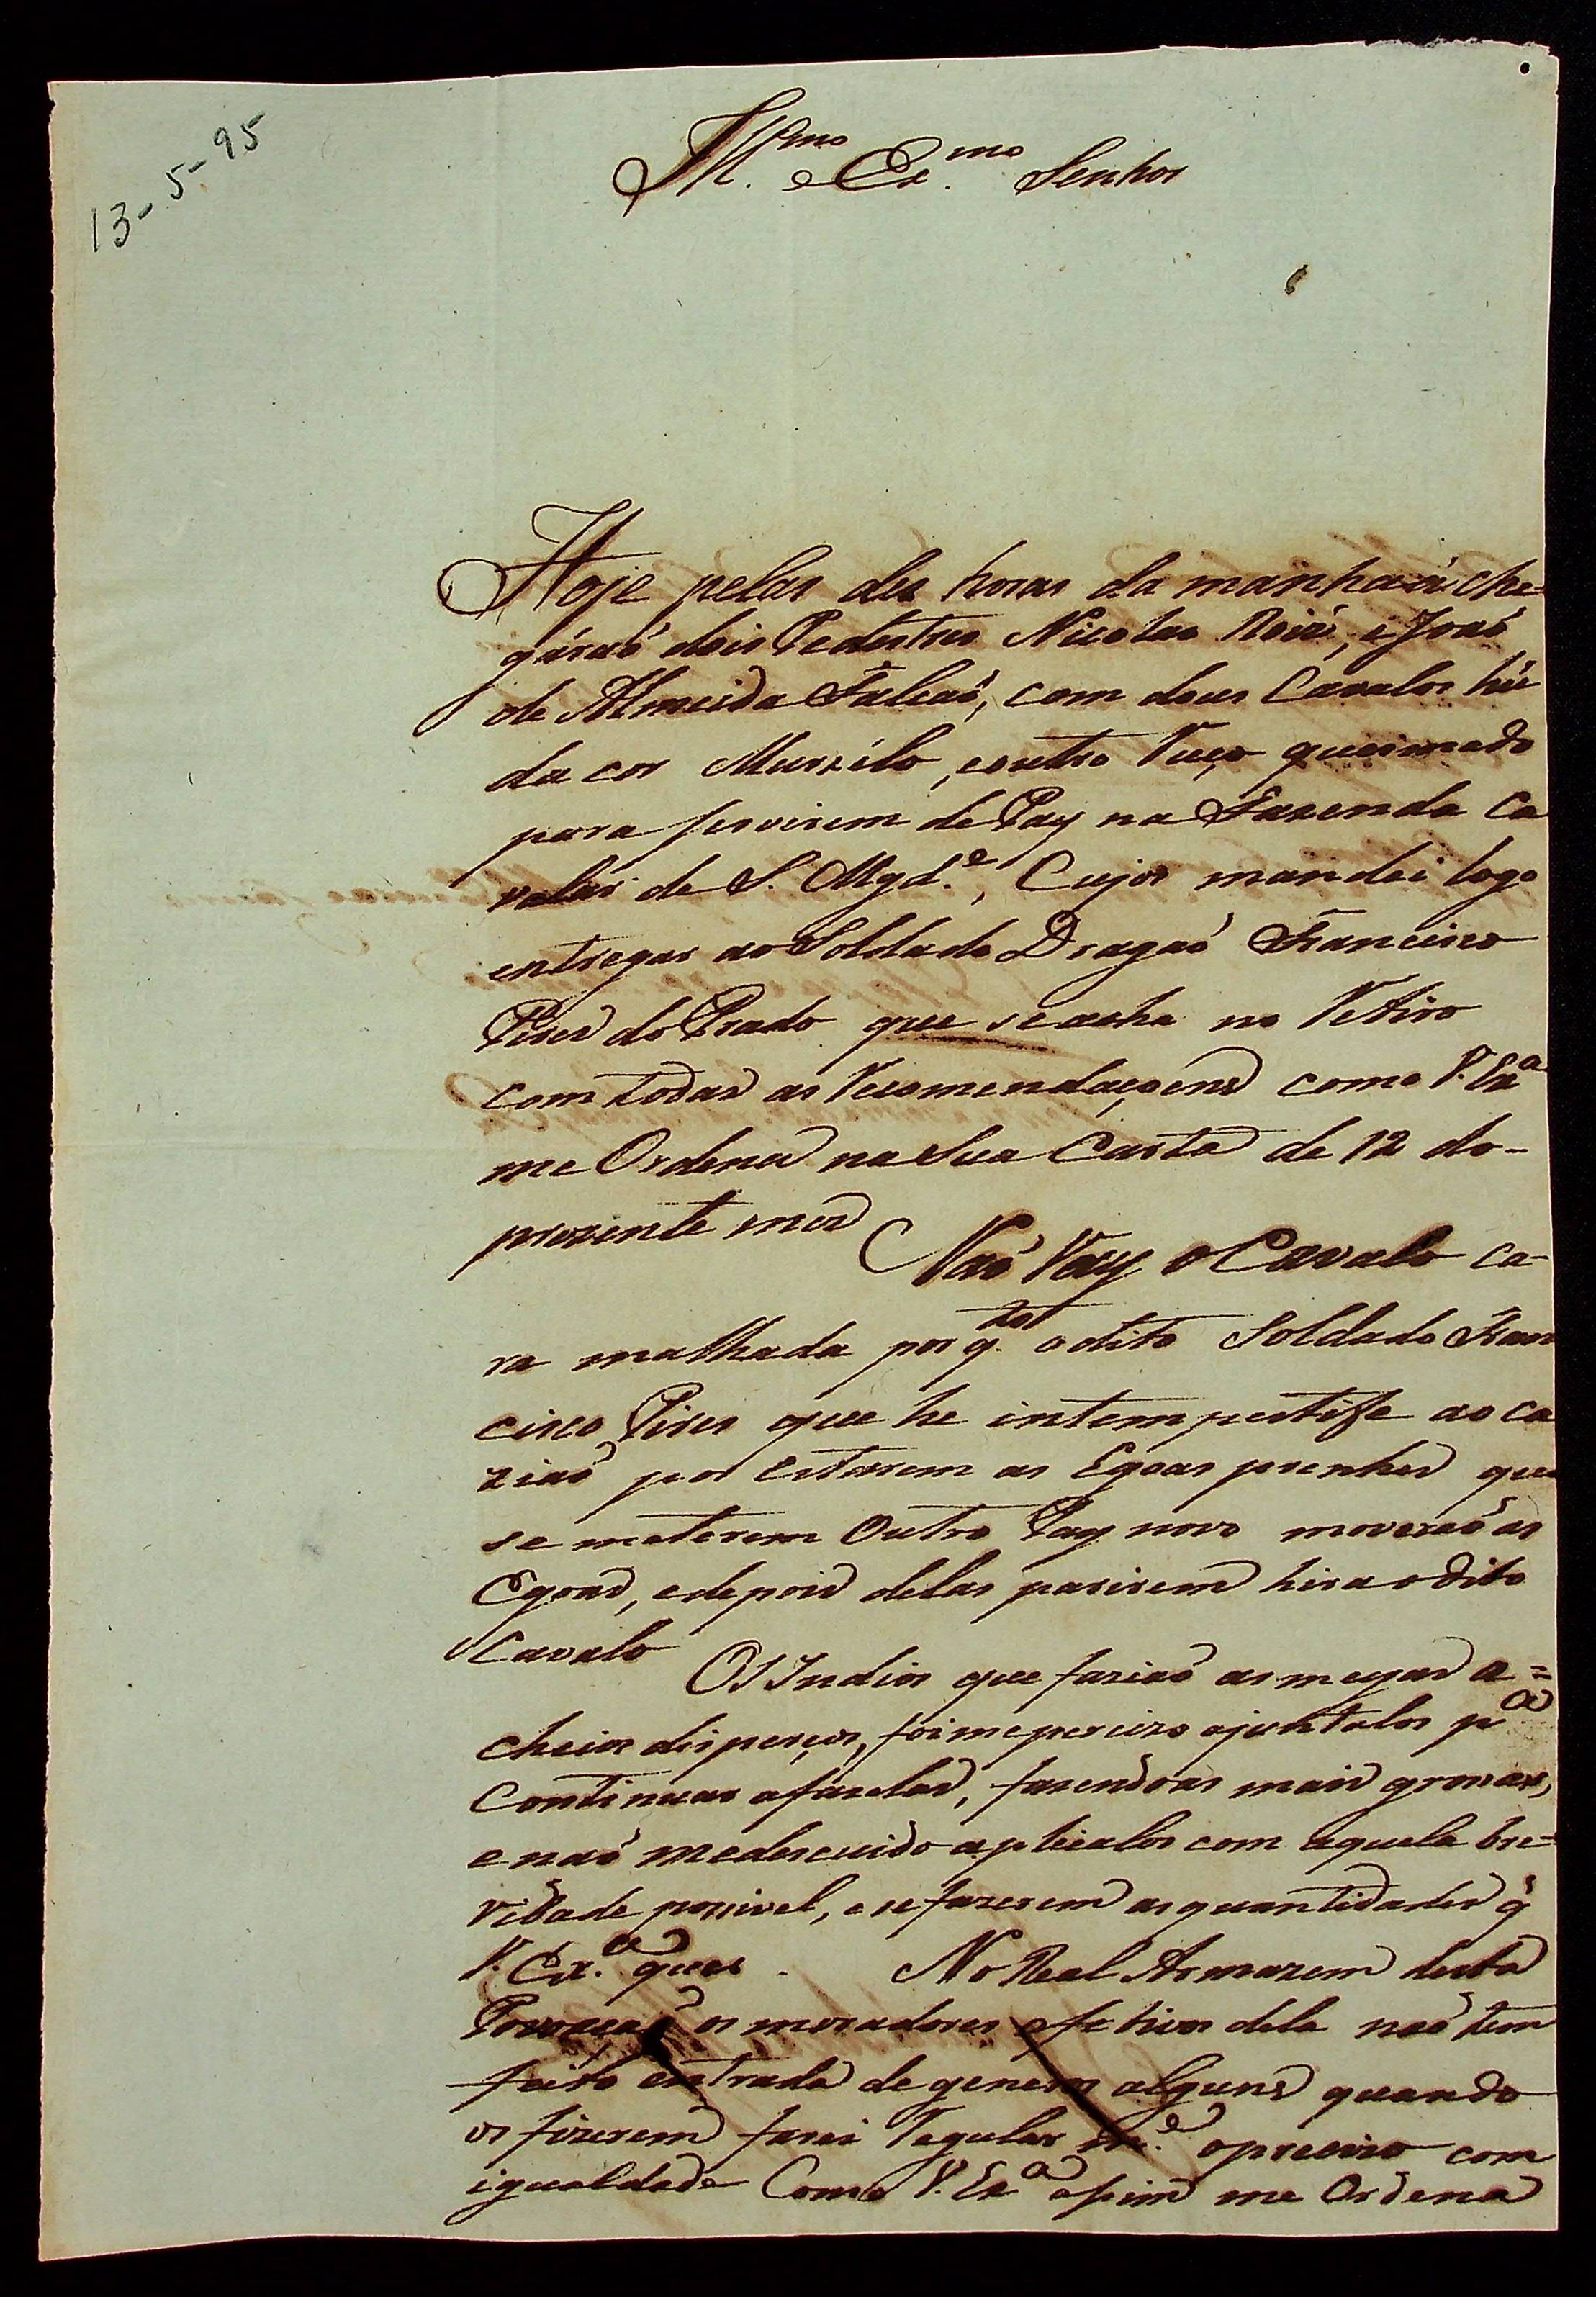 13-5-95
Ill.mo e Ex.mo Senhor
Hoje pelas des horas da manhaã che=
gáraõ dois Pedestres Nicolao Roiz, e Joaõ
de Almeida Falcaõ, com dous Cavalos hũ
da cor Murzelo, e outro Ruço queimado
para servirem de Pay na Fazenda Ca
valar de S. Mgd.e, Cujos mandei logo
entregar ao Soldado Dragaõ Francisco
Pires do Prado que se acha no Retiro
com todas as Recomendaçoens como V. Ex.a
me Ordena na Sua Carta de 12 do-
prezente mes
Naõ Vay o Cavalo ca-
ra malhada por q. o dito Soldado Fran
cisco Pires que he intempestife ao ca
ziaõ por estarem as Egoas prenhes que
se meterem Outro Pay novo moveraõ as
Egoas, e depois delas parirem hira o dito
Cavalo
Os Indios que faziaõ as meyas a=
cheios disperços, foime percizo ajuntalos p.a
Continuar a fazelas, fazendoas mais grosas,
e naõ me descuido aplicalos com aquela bre=
vidade possivel, e se fazerem as quantidades q̃
V. Ex.a quer. No Real Armazem desta
Povoaçaõ os moradores efetivos dela naõ tem
feito entrada de generos alguns quando
os fizerem farei Regular o preciso com
igualdade Como V. Ex.a asim me Ordena